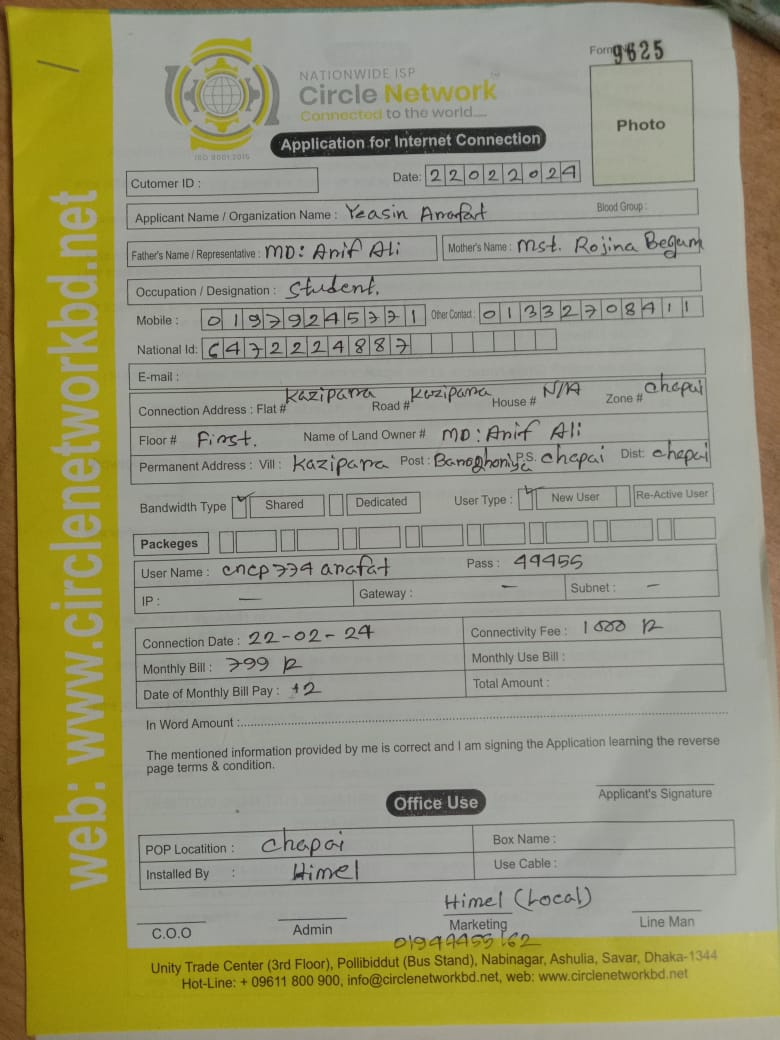 Form 9625
NATIONWIDE ISP
Circle Network
Connected to the world....
ISO 9001:2015
Photo
Application for Internet Connection
Cutomer ID :
Date: 22022024
Applicant Name / Organization Name : Yeasin Arafat Blood Group :
Father's Name / Representative : MD: Arif Ali Mother's Name : Mst. Rojina Begum
Occupation / Designation : Student.
Mobile : 01979245771 Other Contact : 01332708411
National Id: 6472224887
E-mail :
Connection Address : Flat # Kazipara Road # Kazipara House # N/A Zone # Chapai
Floor # First. Name of Land Owner # MD: Arif Ali
Permanent Address : Vill : Kazipara Post : P.S. Chapai Dist: Chapai
Bandwidth Type Shared Dedicated User Type : New User Re-Active User
Packeges
User Name : cncp774 arafat Pass : 44455
IP : — Gateway : — Subnet : —
Connection Date : 22-02-24 Connectivity Fee : 1000
Monthly Bill : 799 Monthly Use Bill :
Date of Monthly Bill Pay : Total Amount :
In Word Amount :
The mentioned information provided by me is correct and I am signing the Application learning the reverse
page terms & condition.
Applicant's Signature
Office Use
POP Locatition : Chapai Box Name :
Installed By : Himel Use Cable :
Himel (Local)
C.O.O Admin Marketing Line Man
Unity Trade Center (3rd Floor), Pollibiddut (Bus Stand), Nabinagar, Ashulia, Savar, Dhaka-1344
Hot-Line: + 09611 800 900, info@circlenetworkbd.net, web: www.circlenetworkbd.net
web: www.circlenetworkbd.net